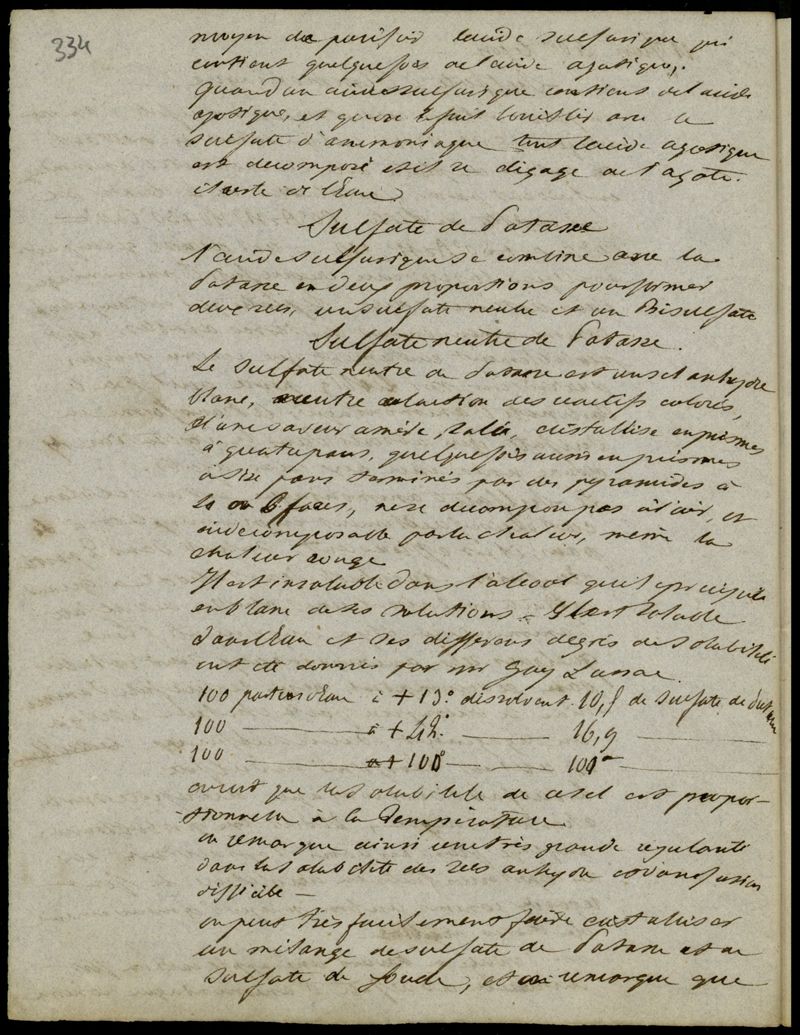 334
moyen de purifier l'acide sulfurique qui
contient quelquefois de l'acide azotique.
quand un acide sulfurique contient de l'acide
azotique, et qu'on le fait bouillir avec le
sulfate d'ammoniaque tout l'acide azotique
est decomposé et il se dégage de l'azote.
et reste de l'Eau
Sulfate de Potasse
l'acide sulfurique se combine avec la
Potasse en deux proportions pour former
deux sels, un sulfate neutre et un Bisulfate
Sulfate neutre de Potasse.
Le sulfate neutre de Potasse est un sel anhydre
blanc, neutre à l'action des réactifs colorés,
d'une saveur amère, salée, cristallise en prismes
à quatre pans, quelquefois aussi en prismes
à six pans terminés par des pyramides à
6 faces, ne se decompose pas à l'air, et
indecomposable par la chaleur, même la
chaleur rouge
Il est insoluble dans l'alcool qui le précipite
en blanc de ses solutions. Il est soluble
dans l'Eau et ses differens degrés de solubilité
ont été donnés par mr Gay Lussac.
100 parties d'Eau à + 13° dissolvent 10,5 de sulfate de Potasse
100 — à + 42° — 16,9
100 — à + 100° —
on voit que la solubilité de ce sel est propor-
tionnelle à la Température
on remarque ainsi une très grande régularité
dans la solubilité des sels anhydres
difficile —
on peut très facilement faire cristalliser
un mélange de sulfate de Potasse et de
sulfate de soude, et on remarque que